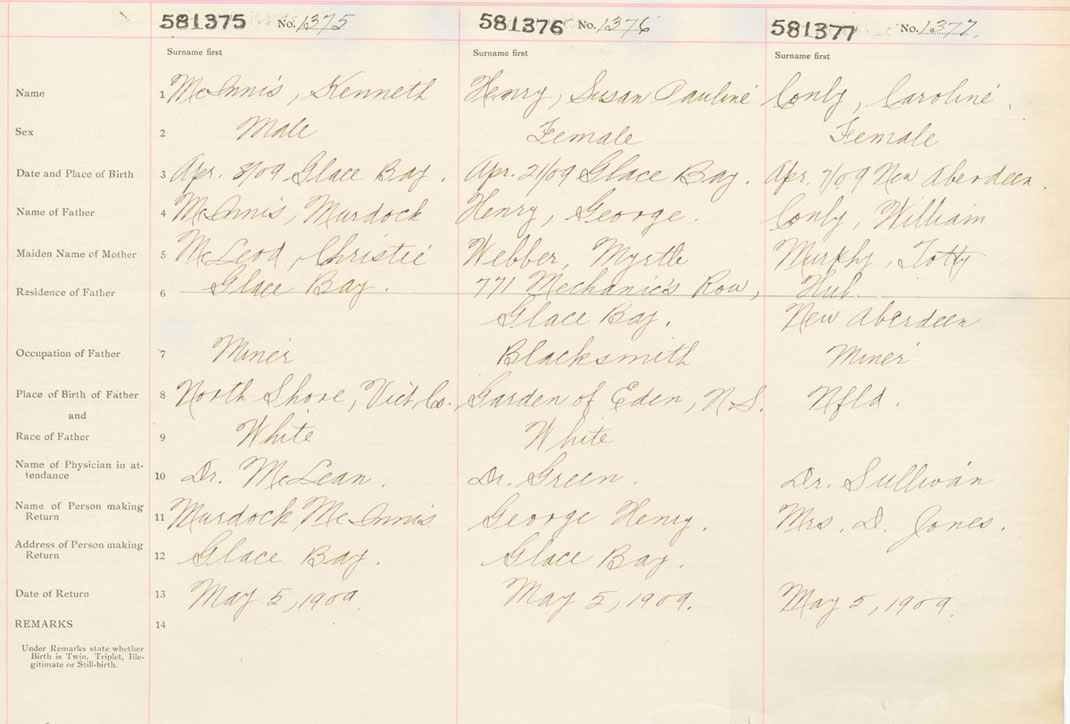 581375 No. 1375 581376 No. 1376 581377 No. 1377
Surname first Surname first Surname first
Name 1 McInnis, Kenneth Henry, Susan Pauline Conly, Caroline.
Sex 2 Male Female Female
Date and Place of Birth 3 Apr. 8/09 Glace Bay. Apr. 21/09 Glace Bay. Apr. 7/09 New Aberdeen.
Name of Father 4 McInnis, Murdock Henry, George. Conly, William
Maiden Name of Mother 5 McLeod, Christie Webber, Myrtle Murphy, Totty
Residence of Father 6 Glace Bay. 771 Mechanic's Row, Hub
Glace Bay. New Aberdeen
Occupation of Father 7 Miner Blacksmith Miner
Place of Birth of Father 8 North Shore, Vict. Co. Garden of Eden, N.S. Nfld.
and
Race of Father 9 White White
Name of Physician in at-
tendance 10 Dr. McLean. Dr. Green. Dr. Sullivan
Name of Person making
Return 11 Murdock McInnis George Henry. Mrs. D. Jones.
Address of Person making
Return 12 Glace Bay. Glace Bay.
Date of Return 13 May 5, 1909. May 5, 1909. May 5, 1909.
REMARKS 14
Under Remarks state whether
Birth is Twin, Triplet, Ille-
gitimate or Still-birth.